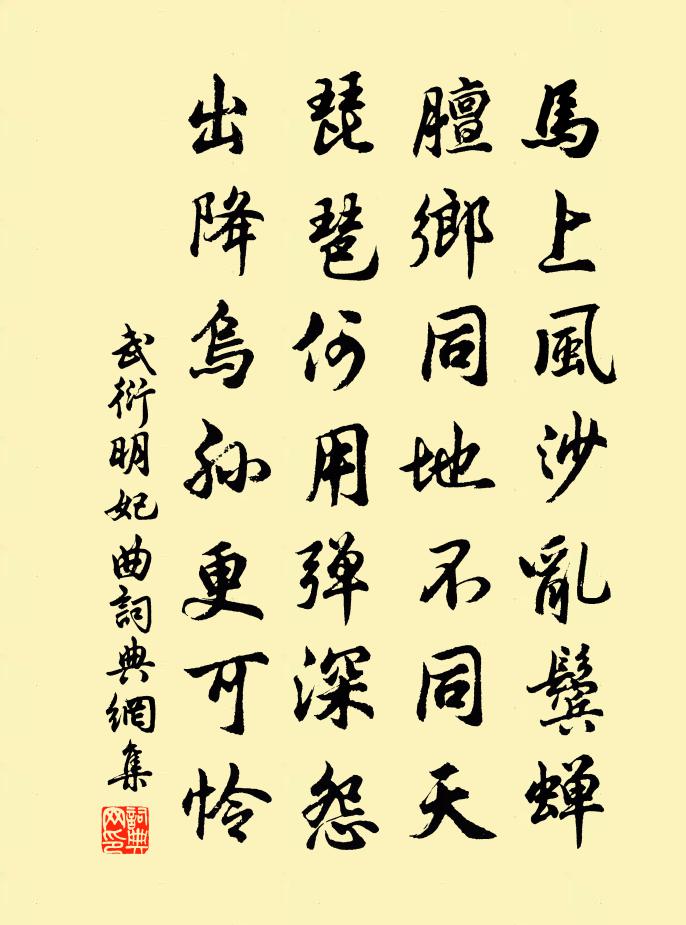 馬上風沙亂鬓蝉
膻鄉同地不同天
琵琶何用弹深怨
出降烏孙更可怜
武衍明妃曲詞典網集
詞典网印